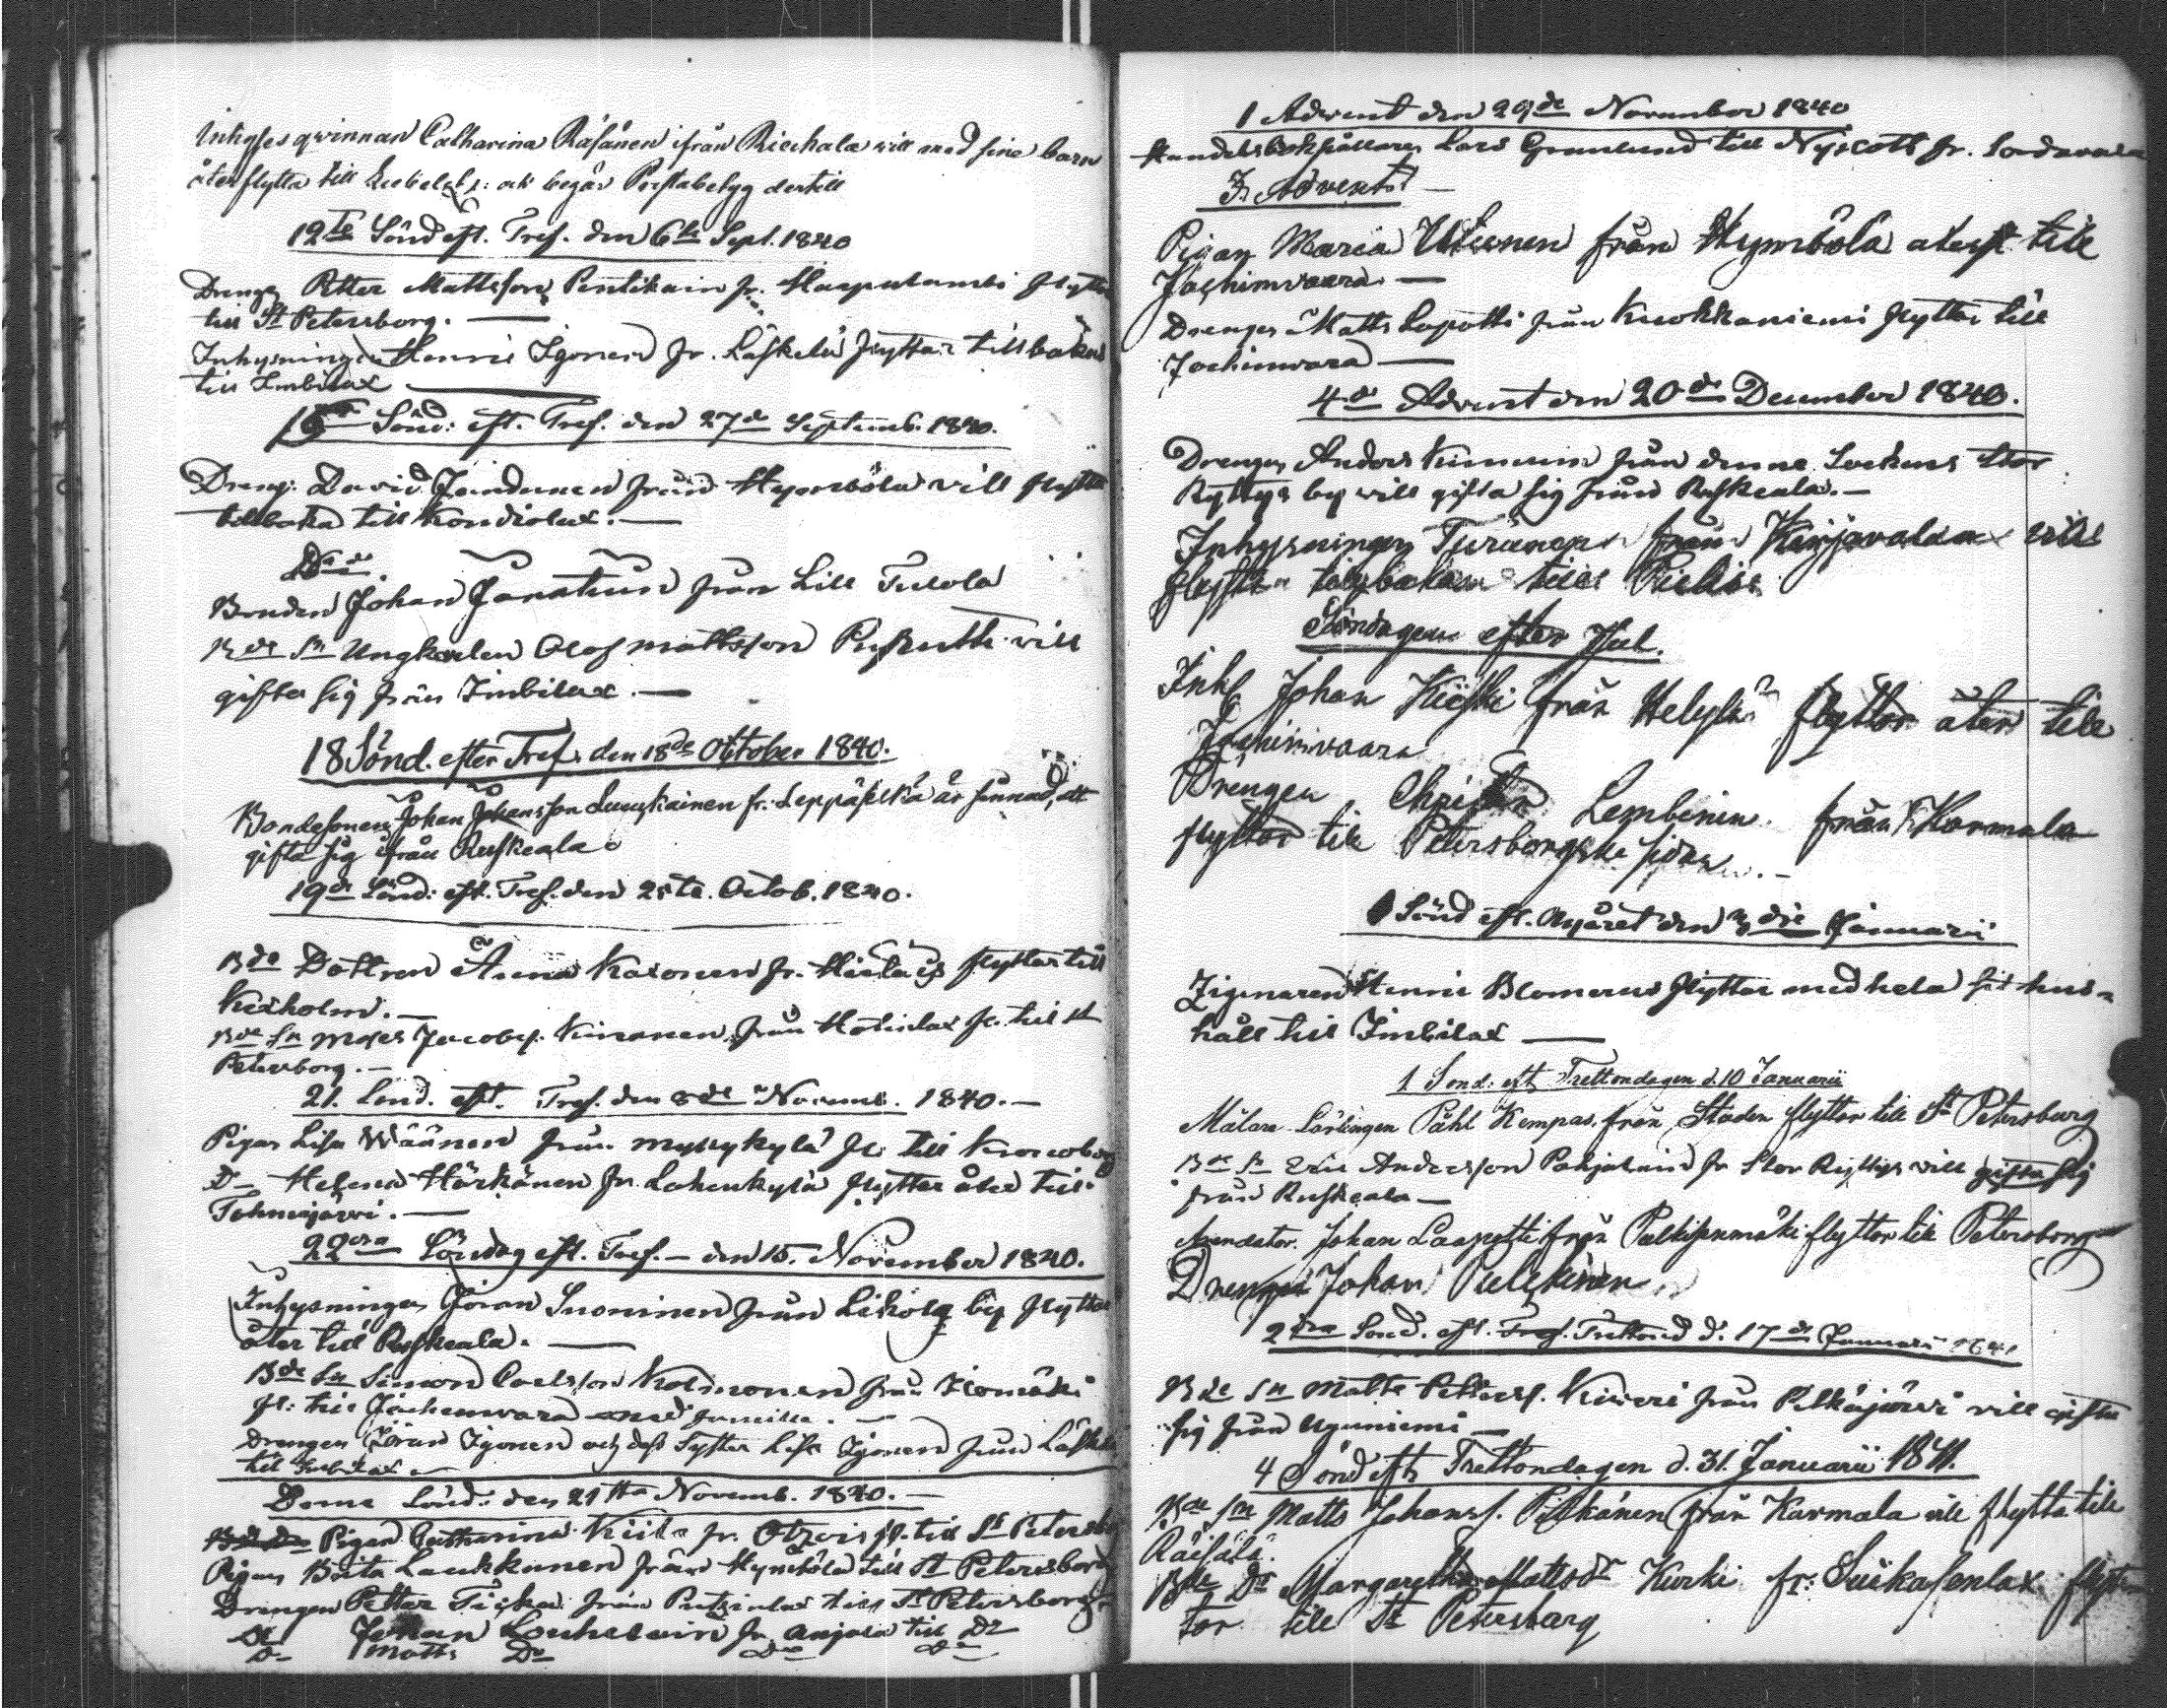 Inhyses qwinnan Catharina Räsänen ifrån Riechala will med sine barn
återflytta till Libelits: och begär Prestabetyg dertill
12te Sönd eft. Tref. den 6te Sept. 1840
Drengen Petter Mattsson Pentikain fr. Haapalambi flyttar
till St Petersborg.
Inhysningen Henric Igonen fr. Läskelä flyttar tillbaka
till Imbilax
15de Sönd: eft. Tref. den 27de Septemb. 1840.
Dreng: David Jandunen från Hymbölä vill flytta
tillbaka till Kondiolax.
Bonden Johan från Lill Tulola
Bde Sn Ungkarlen Olof Mattsson will
gifta sig från Imbilax.
18 Sönd. efter Tref. den 18de October 1840.
Bondesonen Johan Johansson Luuskainen fr: Leppäselkä är sinnad, att
gifta sig ifrån Ruskeala
19de Sönd: eft. Tref. den 25te Octob. 1840.
Bde Dottren Anna Karonen fr. flyttar till
Kexholm.
Bde Sn Moses Jacobs. Kinanen från fl. till St
Petersborg.
21. Sönd. eft. Tref. den 8de Novemb. 1840.
Pigan Lisa Väänen från Myllykylä fl: till Kronoborg
D Helena Härkönen fr. Lahenkylä flyttar åter till
Tohmajärvi.
22dra Söndag eft. Tref. den 15. November 1840.
Inhysningen Göran Suoninen från Likola by flyttar
åter till Ruskeala.
Bde Sn Simon Carlsson från
fl: till Jachimvara med familie.
Drengen Göran Igonen och dess Syster Lisa Igonen från Läskelä
till Imbilax
Doms Sönd: den 21sta Novemb. 1840.
Pigan Catharina fr. Otsois fl. till St Petersb
Pigan Brita Laukkanen från Hymbölä till St Petersborg
Drengen Petter från till St Petersborg
D Johan fr. Anjala till Do
D Matts Do Do Do
1 Advent den 29de November 1840
Handelsbokhållaren Lars Granlund till Nyslott fr. Sordavala
3. Advent
Pigan Maria från Hymbölä återfl. till
Jachimvaara
Drengen Matts Lapotti från Kuokkaniemi flyttar till
Jachimvara
4de Advent den 20de December 1840.
Drengen Anders från denne Sockens Stor
Ryttys by will gifta sig från Ruskeala.
Inhysningen Turänen från Kirjavalax will
flytta tillbaka till Pielis
Söndagen efter Jul.
Inhs Johan från Helylä flyttar åter till
Jachimvaara
Drengen Christer Lembinen från Karmala
flyttar till Petersborgska sidan.
1 Sönd eft. Nyåret den 3die Januarii
Zigenaren Henric Blomerus flyttar med hela sit hus-
håll till Imbilax
1 Sönd: eft Trettondagen d. 10 Januarii
Målare Lärlingen Påhl Kempas från Staden flyttar till St Petersburg
Bde Sn Eric Andersson fr Stor Ryttys will gifta sig
från Ruskeala
Arendator. Johan Laapotti från flyttar till Petersborg
Drengen Johan
2dra Sönd. eft. Tref. Trettond d. 17de Januari 1841
Bde Sn Matts Petterss. från Pitkäjärvi vill gifta
sig från Uguniemi
4 Sönd eft Trettondagen d. 31. Januarii 1841.
Bde Sn Matts Johanss. Pitkänen från Karmala vill flytta till
Räisälä.
Bde Dr Margaretha Matsdr Kurki fr: flyt-
tar till St Petersburg